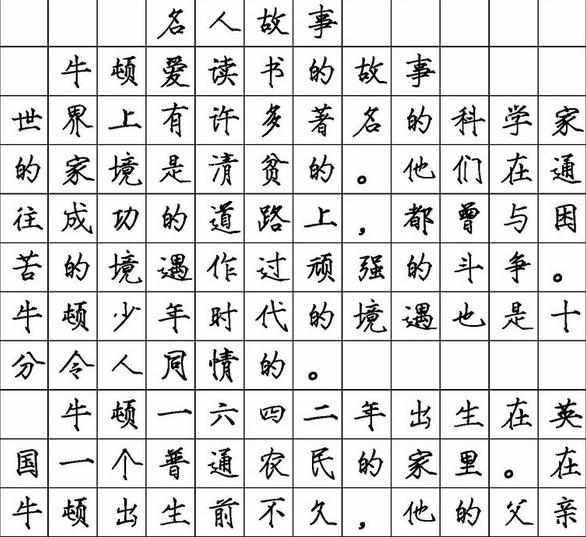 名人故事
牛顿爱读书的故事
世界上有许多著名的科学家
的家境是清贫的。他们在通
往成功的道路上，都曾与困
苦的境遇作过顽强的斗争。
牛顿少年时代的境遇也是十
分令人同情的。
牛顿一六四二年出生在英
国一个普通农民的家里。在
牛顿出生前不久，他的父亲